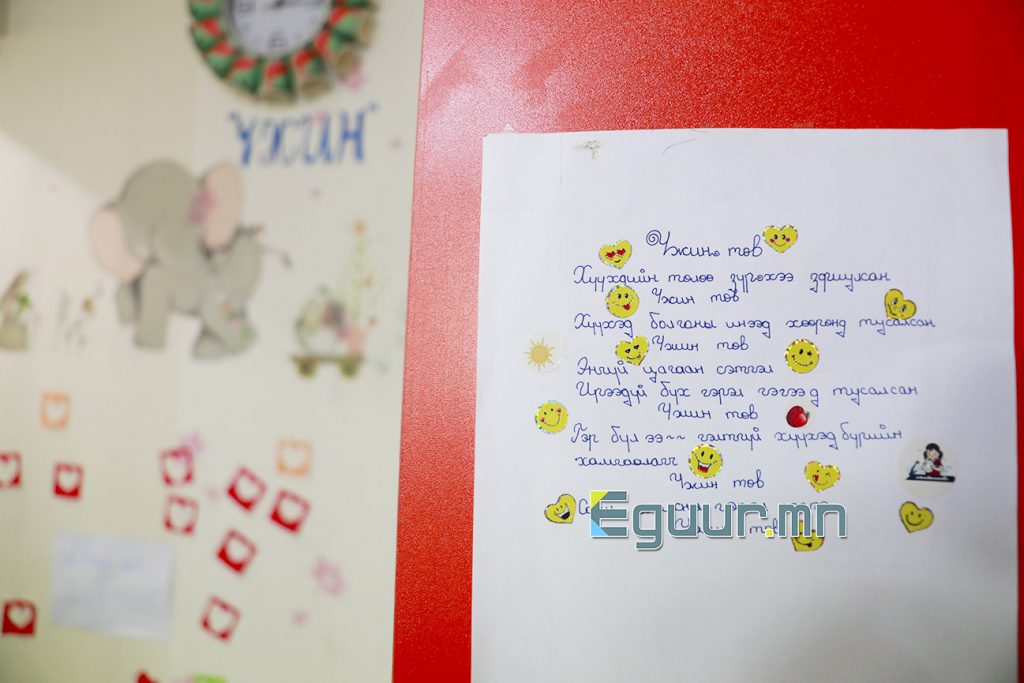 "ҮЖИН"
Үжин төв
Хүүхдийн төлөө зүрхээ зориулсан
Үжин төв
Хүүхэд болгоны инээд хөөрөнд тусалсан
Үжин төв
Энгүй цагаан сэтгэл
Ирээдүй бүх гэрэл гэгээ д тусалсан
Үжин төв
Гэр бүл ээ~~ гэлтгүй хүүхэд бүрийн
хамгаалагч
Үжин төв
Eguur.mn
төв